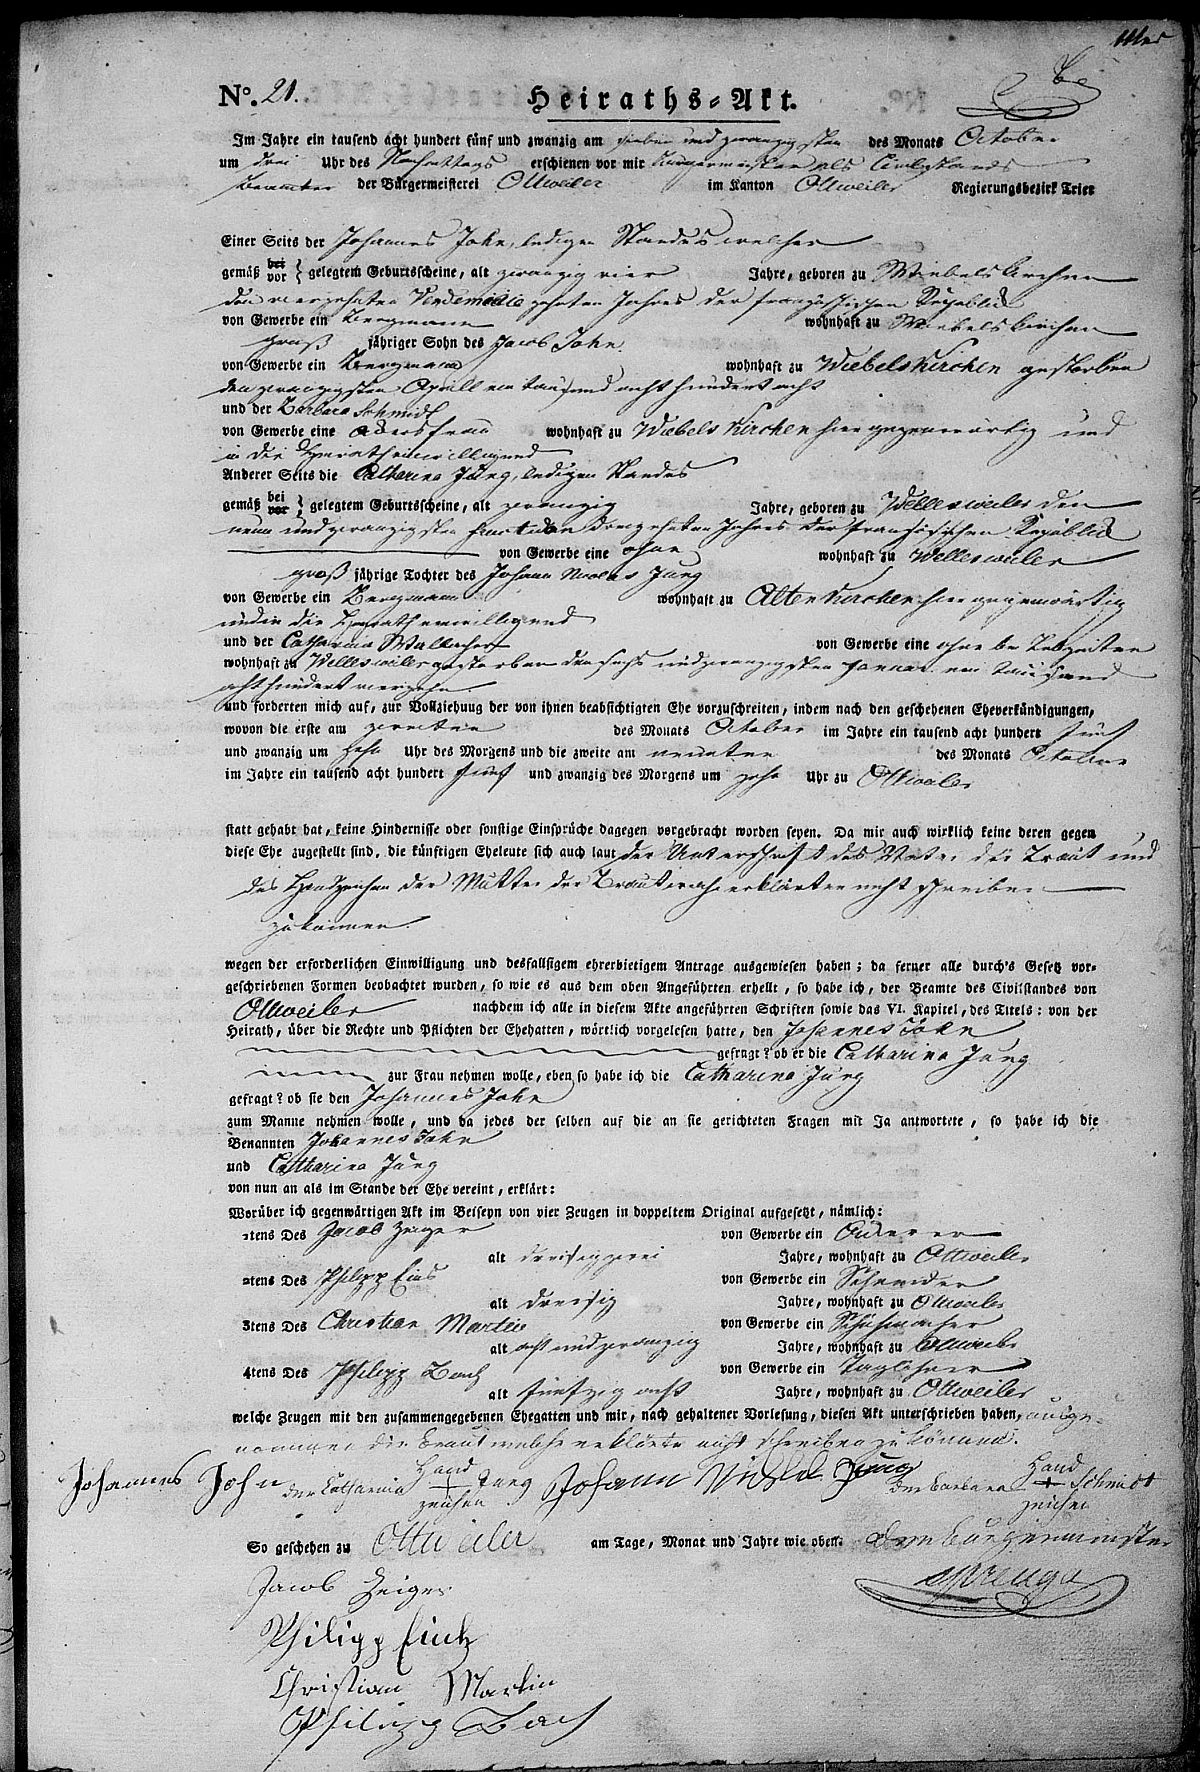 No. 21.
Heiraths-Akt.
Im Jahre ein tausend acht hundert fünf und zwanzig am sieben und zwanzigsten des Monats October
um drei Uhr des Nachmittags erschienen vor mir Bürgermeister als Civilstands
beamter der Bürgermeisterei Ottweiler im Kanton Ottweiler Regierungsbezirk Trier
Einer Seits der Johannes John, ledigen Standes welcher
gemäß bei vor gelegtem Geburtsscheine, alt zwanzig vier Jahre, geboren zu Wiebelskirchen
den vierzehnten Vendemiaire zehnten Jahres der französischen Republick
von Gewerbe ein Bergmann wohnhaft zu Wiebelskirchen
groß jähriger Sohn des Jacob John
von Gewerbe ein Bergmann wohnhaft zu Wiebelskirchen gestorben
den zwanzigsten Aprill ein tausend acht hundert acht
und der Barbara Schmidt
von Gewerbe eine Ackersfrau wohnhaft zu Wiebelskirchen hier gegenwärtig und
in die Heirath einwilligend
Anderer Seits die Catharina Jung, ledigen Standes
gemäß bei vor gelegtem Geburtsscheine, alt zwanzig Jahre, geboren zu Wellesweiler den
neun und zwanzigsten Fructidor dreizehnten Jahres der französischen Republick
von Gewerbe eine ohne wohnhaft zu Wellesweiler
groß jährige Tochter des Johann Nicolas Jung
von Gewerbe ein Bergmann wohnhaft zu Altenkirchen hier gegenwärtig
und in die Heirath einwilligend
und der Catharina von Gewerbe eine ohne bei Lebzeiten
wohnhaft zu Wellesweiler gestorben den sechs und zwanzigsten Januar ein tausend
acht hundert vierzehn
und forderten mich auf, zur Vollziehung der von ihnen beabsichtigten Ehe vorzuschreiten, indem nach den geschehenen Eheverkündigungen,
wovon die erste am zweiten des Monats October im Jahre ein tausend acht hundert fünf
und zwanzig um zehn Uhr des Morgens und die zweite am neunten des Monats October
im Jahre ein tausend acht hundert fünf und zwanzig des Morgens um zehn Uhr zu Ottweiler
statt gehabt hat, keine Hindernisse oder sonstige Einsprüche dagegen vorgebracht worden seyen. Da mir auch wirklich keine deren gegen
diese Ehe zugestellt sind, die künftigen Eheleute sich auch laut der Unterschrift des Vaters der Braut und
des Handzeichen der Mutter des Bräutigams erklärten nicht schreiben
zu können.
wegen der erforderlichen Einwilligung und desfallsigem ehrerbietigem Antrage ausgewiesen haben; da ferner alle durch's Gesetz vor-
geschriebenen Formen beobachtet wurden, so wie es aus dem oben Angeführten erhellt, so habe ich, der Beamte des Civilstandes von
Ottweiler nachdem ich alle in diesem Akte angeführten Schriften sowie das VI. Kapitel, des Titels: von der
Heirath, über die Rechte und Pflichten der Ehehatten, wörtlich vorgelesen hatte, den Johannes John
gefragt? ob er die Catharina Jung
zur Frau nehmen wolle, eben so habe ich die Catharina Jung
gefragt? ob sie den Johannes John
zum Manne nehmen wolle, und da jedes der selben auf die an sie gerichteten Fragen mit Ja antwortete, so habe ich die
Benannten Johannes John
und Catharina Jung
von nun an als im Stande der Ehe vereint, erklärt:
Worüber ich gegenwärtigen Akt im Beiseyn von vier Zeugen in doppeltem Original aufgesetzt, nämlich:
1tens Des Jacob Zeiger von Gewerbe ein
alt dreisig zwei Jahre, wohnhaft zu Ottweiler
2tens Des Philipp von Gewerbe ein Schneider
alt dreisig Jahre, wohnhaft zu Ottweiler
3tens Des Christian Martin von Gewerbe ein Schuhmacher
alt acht und zwanzig Jahre, wohnhaft zu Ottweiler
4tens Des Philipp Bach von Gewerbe ein Taglöhner
alt fünfzig acht Jahre, wohnhaft zu Ottweiler
welche Zeugen mit den zusammengegebenen Ehegatten und mir, nach gehaltener Vorlesung, diesen Akt unterschrieben haben, ausge-
nommen die Braut welche erklärte nicht schreiben zu können.
Johannes John der Catharina Hand + zeichen Jung Johann Nickel Jung der Barbara Hand + zeichen Schmidt
So geschehen zu Ottweiler am Tage, Monat und Jahre wie oben. Der Bürgermeister
Jacob Zeiger
Philipp
Christian Martin
Philipp Bach